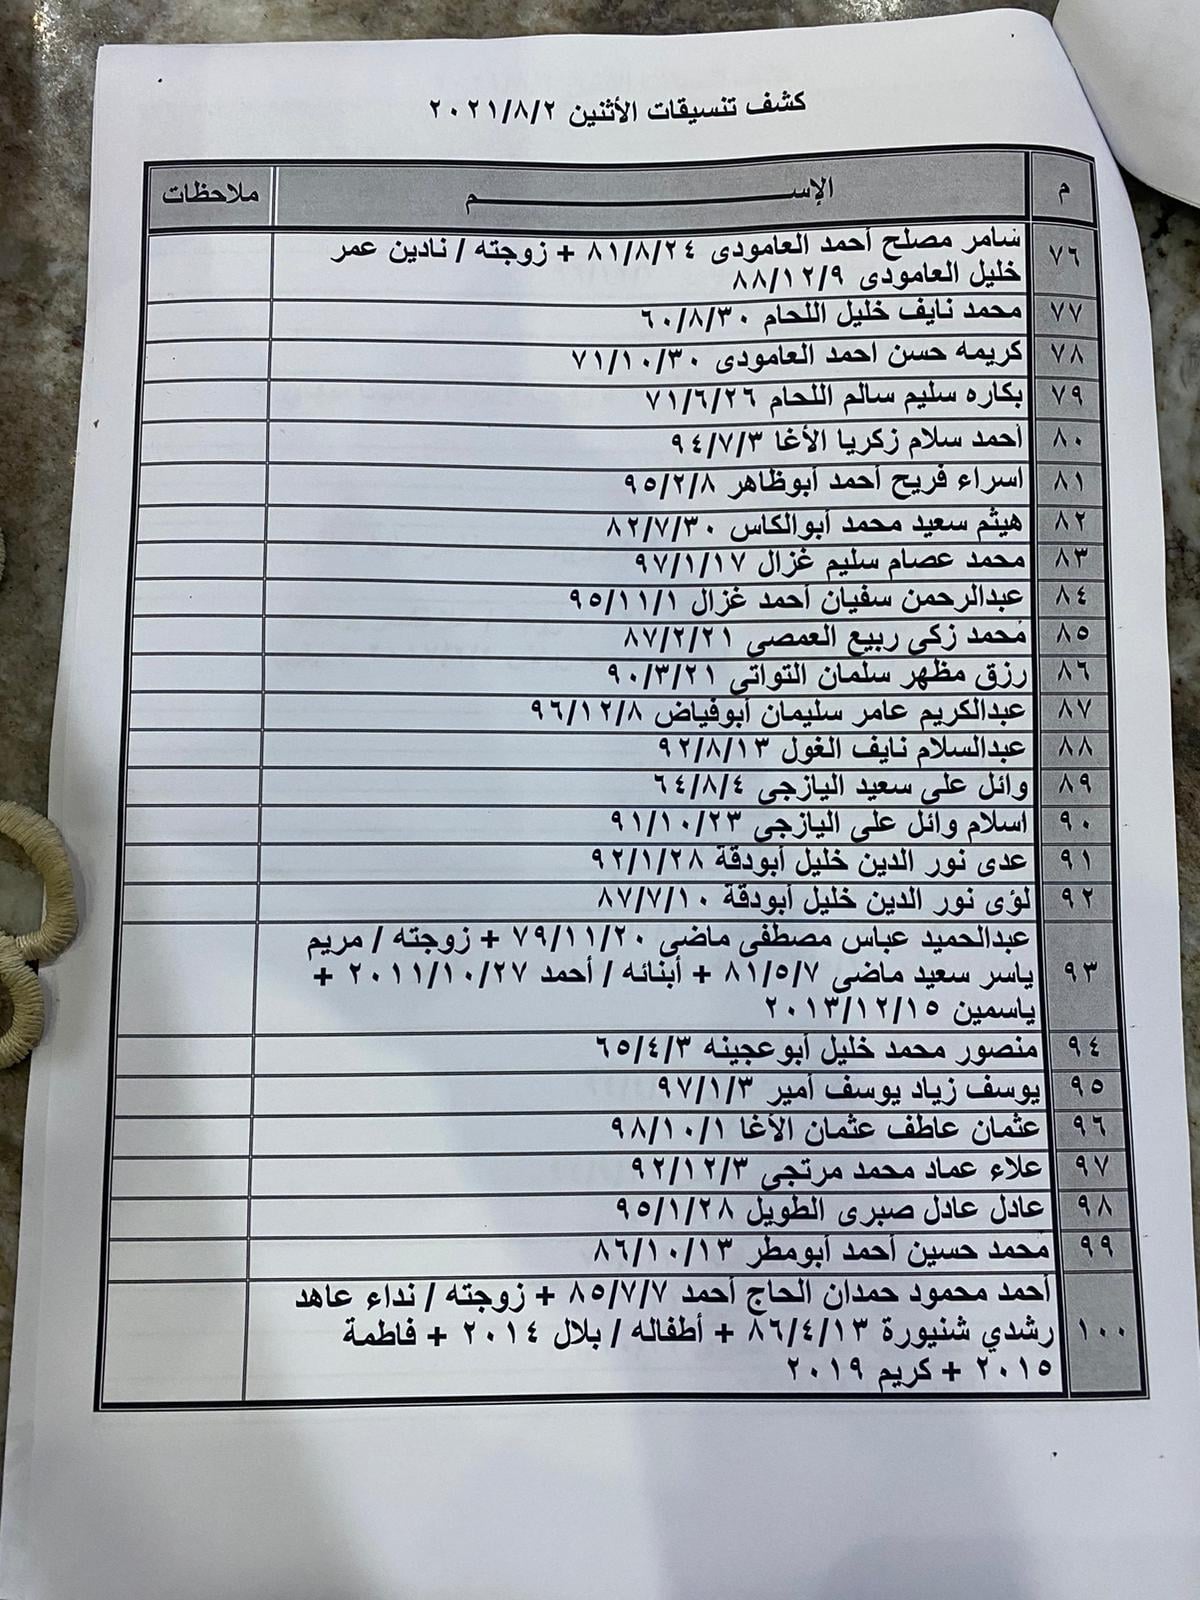 كشف تنسيقات الأثنين ٢٠٢١/٨/٢
م الإســـــــــــــــــم ملاحظات
٧٦ سامر مصلح أحمد العامودى ٨١/٨/٢٤ + زوجته / نادين عمر
خليل العامودى ٨٨/١٢/٩
٧٧ محمد نايف خليل اللحام ٦٠/٨/٣٠
٧٨ كريمه حسن احمد العامودى ٧١/١٠/٣٠
٧٩ بكاره سليم سالم اللحام ٧١/٦/٢٦
٨٠ أحمد سلام زكريا الأغا ٩٤/٧/٣
٨١ اسراء فريح أحمد أبوظاهر ٩٥/٢/٨
٨٢ هيثم سعيد محمد أبوالكاس ٨٢/٧/٣٠
٨٣ محمد عصام سليم غزال ٩٧/١/١٧
٨٤ عبدالرحمن سفيان أحمد غزال ٩٥/١١/١
٨٥ محمد زكى ربيع العمصى ٨٧/٢/٢١
٨٦ رزق مظهر سلمان التواتى ٩٠/٣/٢١
٨٧ عبدالكريم عامر سليمان أبوفياض ٩٦/١٢/٨
٨٨ عبدالسلام نايف الغول ٩٢/٨/١٣
٨٩ وائل على سعيد اليازجى ٦٤/٨/٤
٩٠ اسلام وائل على اليازجى ٩١/١٠/٢٣
٩١ عدى نور الدين خليل أبودقة ٩٢/١/٢٨
٩٢ لؤى نور الدين خليل أبودقة ٨٧/٧/١٠
٩٣ عبدالحميد عباس مصطفى ماضى ٧٩/١١/٢٠ + زوجته / مريم
ياسر سعيد ماضى ٨١/٥/٧ + أبنائه / أحمد ٢٠١١/١٠/٢٧ +
ياسمين ٢٠١٣/١٢/١٥
٩٤ منصور محمد خليل أبوعجينه ٦٥/٤/٣
٩٥ يوسف زياد يوسف أمير ٩٧/١/٣
٩٦ عثمان عاطف عثمان الأغا ٩٨/١٠/١
٩٧ علاء عماد محمد مرتجى ٩٢/١٢/٣
٩٨ عادل عادل صبرى الطويل ٩٥/١/٢٨
٩٩ محمد حسين أحمد أبومطر ٨٦/١٠/١٣
١٠٠ أحمد محمود حمدان الحاج أحمد ٨٥/٧/٧ + زوجته / نداء عاهد
رشدي شنيورة ٨٦/٤/١٣ + أطفاله / بلال ٢٠١٤ + فاطمة
٢٠١٥ + كريم ٢٠١٩